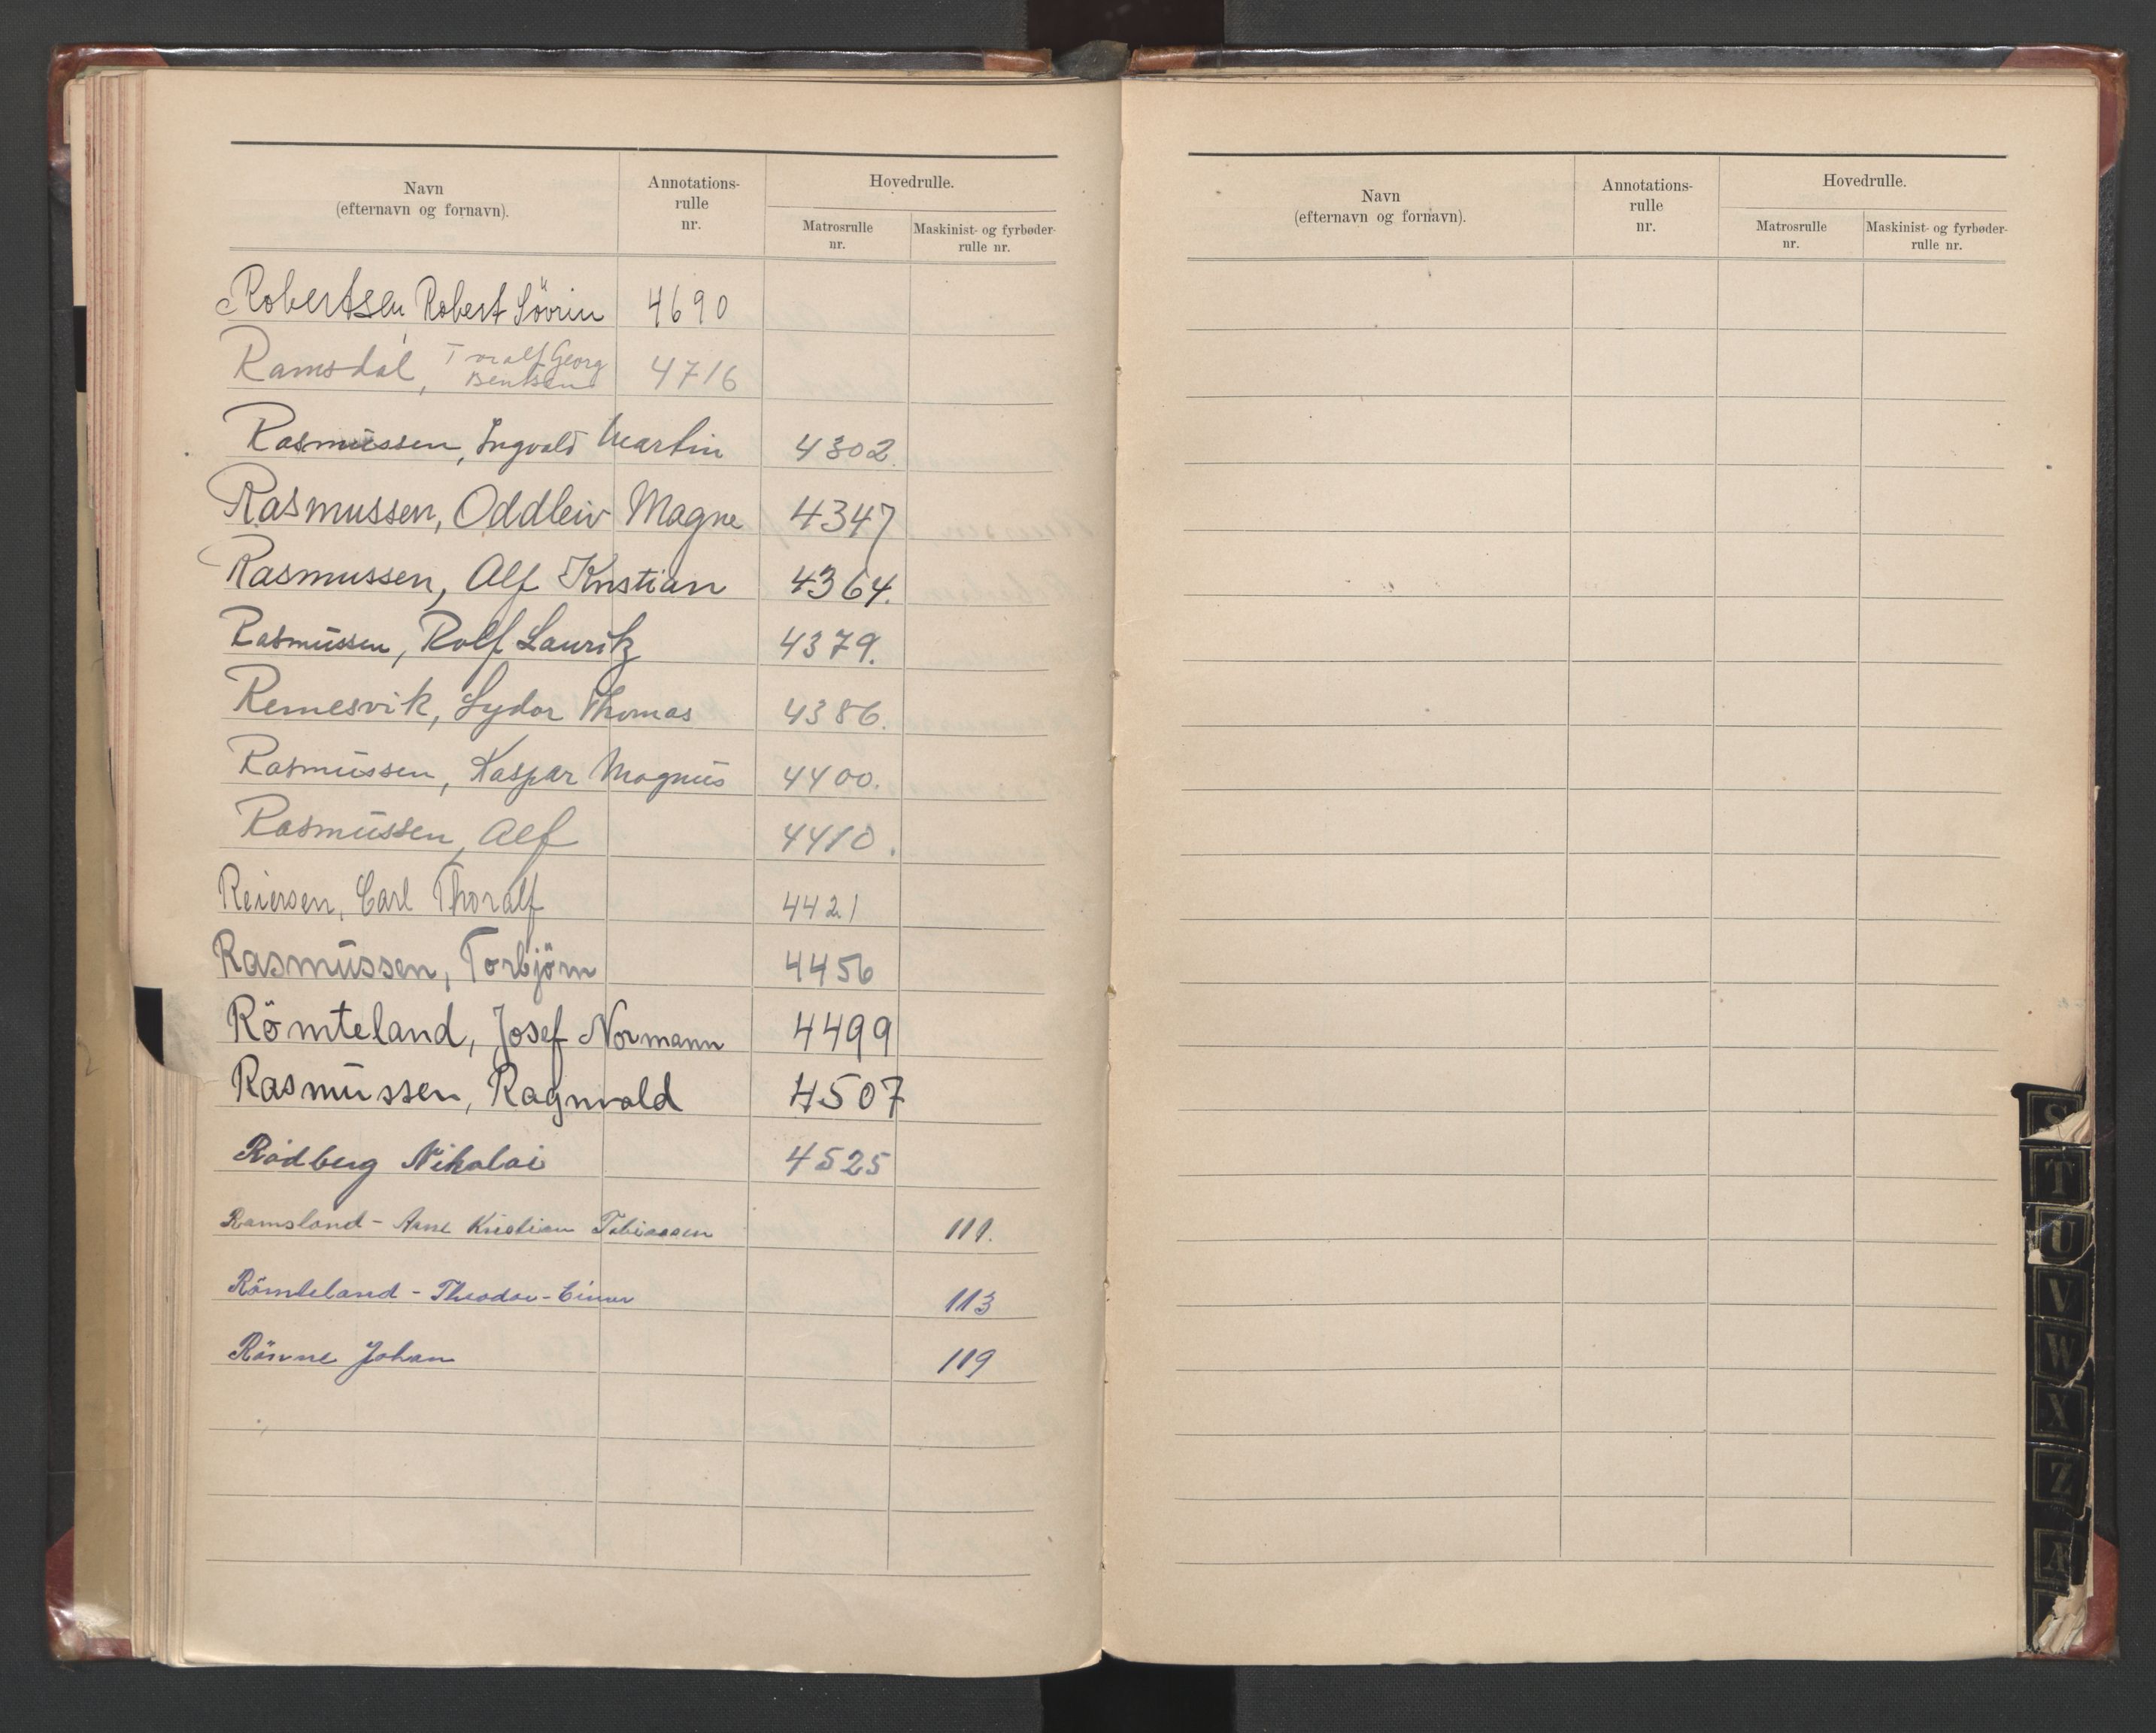 Navn
(efternavn og fornavn).
Annotations-
rulle
nr.
Hovedrulle.
Matrosrulle
nr.
Maskinist- og fyrbøder-
rulle nr.
Robertsen Robert Sövrin 4690
Ramsdal, Toralf Georg
Bentsen 4716
Rasmussen, Ingvald Martin 4302
Rasmussen, Oddleiv Magne 4347
Rasmussen, Alf Kristian 4364.
Rasmussen, Rolf Lauritz 4379.
Remesvik, Lydor Thomas 4386.
Rasmussen, Kaspar Magnus 4400.
Rasmussen, Alf 4410.
Reiersen, Carl Thoralf 4421
Rasmussen, Torbjörn 4456
Römteland, Josef Normann 4499
Rasmussen, Ragnvald 4507
Rödberg Nikolai 4525
Ramsland - Arne Kristian Tobiassen 111.
Römteland - Theodor - Einar 113
Rönne Johan 119
Navn
(efternavn og fornavn).
Annotations-
rulle
nr.
Hovedrulle.
Matrosrulle
nr.
Maskinist- og fyrbøder-
rulle nr.
S
T
U
V
W
X
Z